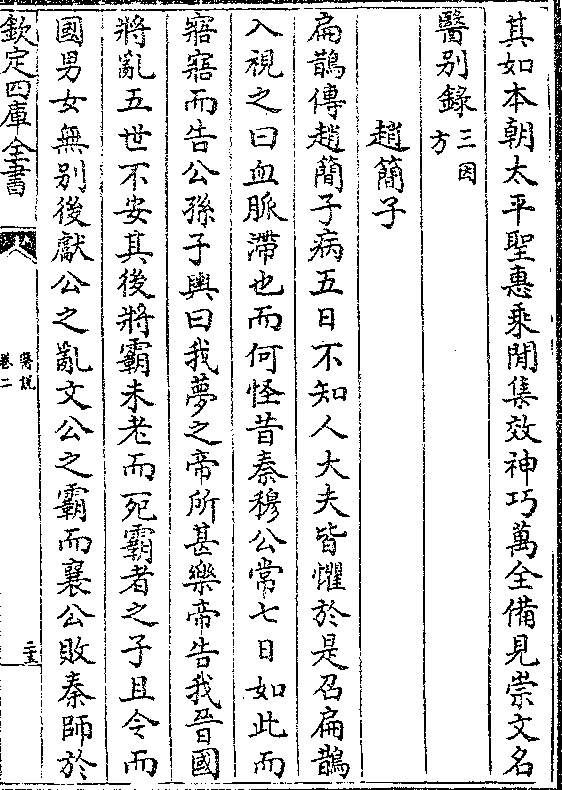 其如本朝太平聖惠乘閒集效神巧萬全備見崇文名
醫别錄三因方
趙簡子
扁鵲傳趙簡子病五日不知人大夫皆懼於是召扁鵲
入視之曰血脈滯也而何怪昔秦穆公常七日如此而
寤寤而告公孫子輿曰我夢之帝所甚樂帝告我晉國
將亂五世不安其後將霸未老而死霸者之子且令而
國男女無别後獻公之亂文公之霸而襄公敗秦師於
欽定四庫全書
醫說
卷二
二十五